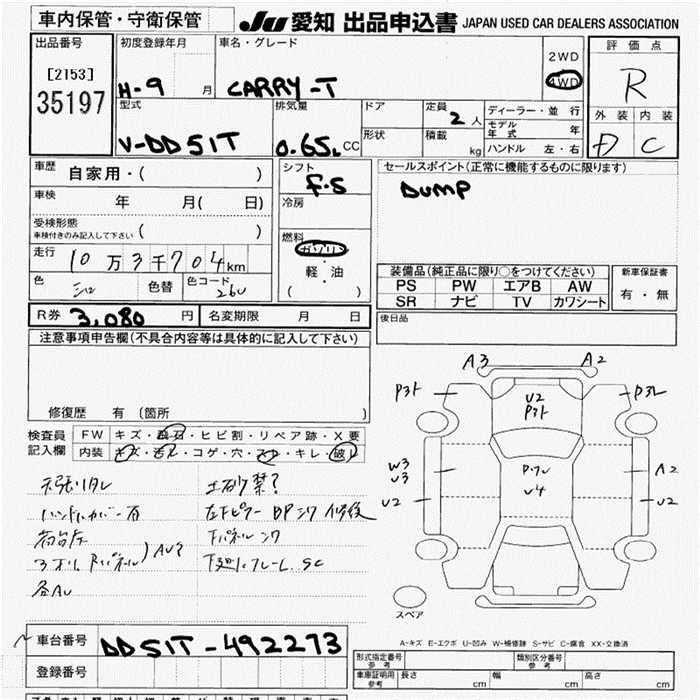 車内保管・守衛保管
JU 愛知 出品申込書 JAPAN USED CAR DEALERS ASSOCIATION
出品番号
[2153]
35197
初度登録年月
H-9 月
車名・グレード
CARRY-T
2WD
4WD
評価点
R
外装 内装
D C
型式
V-DD51T
排気量
0.65L CC
ドア
形状
定員
2人
積載
kg
ディーラー・並行
モデル年式 年
ハンドル 左・右
車歴 自家用・( )
車検 年 月( 日)
受検形態
車検付きのみ記入して下さい ( )
走行 10万3千704km
色
色替
色コード 26U
シフト
F.5
冷房
燃料
ガソリン
軽・油
( )
セールスポイント(正常に機能するものに限ります)
DUMP
装備品(純正品に限り○をつけてください)
PS PW エアB AW
SR ナビ TV カワシート
新車保証書
有・無
後日品
R券 3,080 円 名変期限 月 日
注意事項申告欄(不具合内容等は具体的に記入して下さい)
修復歴 有 (箇所 )
検査員
記入欄
FW キズ・飛石・ヒビ割・リペア跡・X要
内装 キズ・汚レ・コゲ・穴・スレ・キレ・破レ
土砂禁?
ハンドルカバー有
荷台左
下パネルシワ
AU?
各AU
A3 A2
P3ト P3ト
U2
P3ト
W3
U3
U2
U4
A2
U2
スペア
A-キズ E-エクボ U-凹み W-補修跡 S-サビ C-腐食 XX-交換済
車台番号 DD51T-492273
登録番号
形式指定番号
参考
類別区分番号
参考
車庫証明用
参考
長さ cm 幅 cm 高さ cm